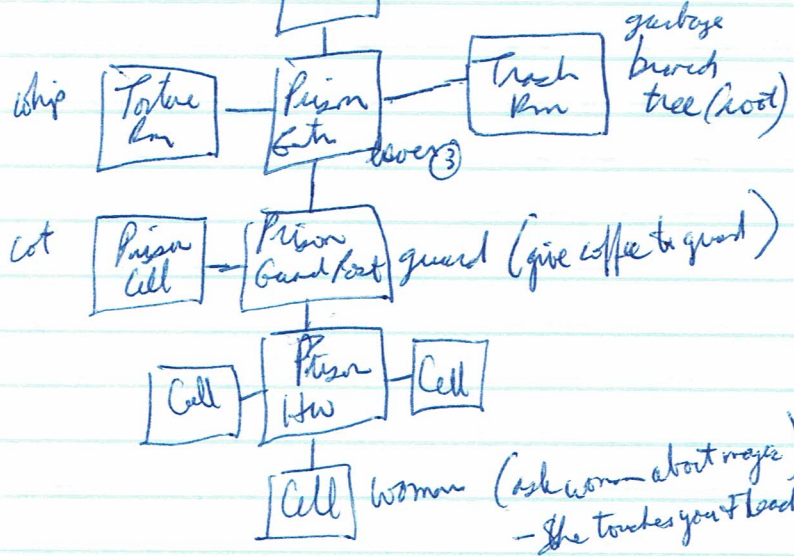 garbage
branch
tree (root)
whip
Torture
Rm
Prison
Entr
Trash
Rm
③
cot
Prison
Cell
Prison
Guard Post
guard (give coffee to guard)
Cell
Prison
HW
Cell
Cell
woman (ask woman about magic)
- She touches your head